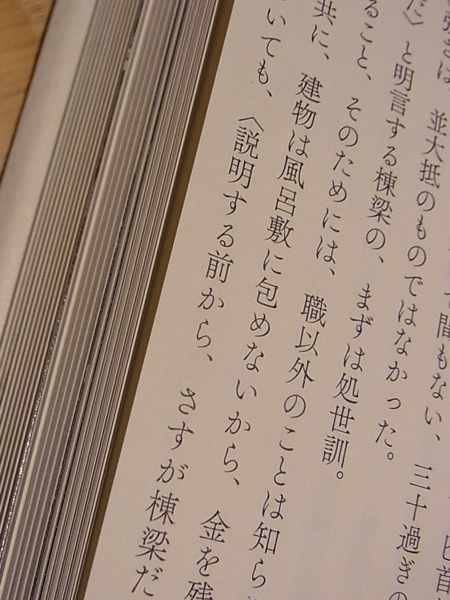 匕首
間もない、三十過ぎの
強さは、並大抵のものではなかった。
だ〉と明言する棟梁の、まずは処世訓。
ること、そのためには、職以外のことは知ら
共に、建物は風呂敷に包めないから、金を残
いても、〈説明する前から、さすが棟梁だ